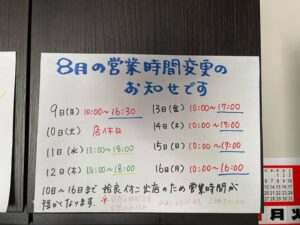 8月の営業時間変更の
お知せです
9日(月) 10:00~16:30
13日(金) 10:00~17:00
10日(火) 店休日
14日(土) 10:00~17:00
11日(水) 10:00~18:00
15日(日) 10:00~17:00
12日(木) 10:00~18:00
16日(月) 10:00~16:00
10日~16日まで 出店のため営業時間が
なります。
月